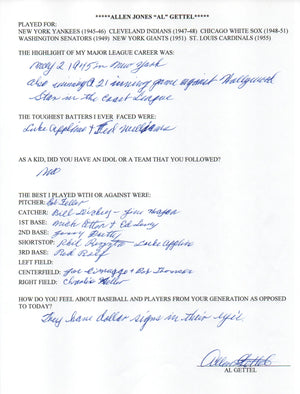 *****ALLEN JONES "AL" GETTEL*****
PLAYED FOR:
NEW YORK YANKEES (1945-46) CLEVELAND INDIANS (1947-48) CHICAGO WHITE SOX (1948-51)
WASHINGTON SENATORS (1949) NEW YORK GIANTS (1951) ST. LOUIS CARDINALS (1955)
THE HIGHLIGHT OF MY MAJOR LEAGUE CAREER WAS:
May 2 1945 in New York
also winning a 21 inning game against Hollywood
Stars in the Coast League
THE TOUGHEST BATTERS I EVER FACED WERE:
Luke Appling & Ted Williams
AS A KID, DID YOU HAVE AN IDOL OR A TEAM THAT YOU FOLLOWED?
No
THE BEST I PLAYED WITH OR AGAINST WERE:
PITCHER: Bob Feller
CATCHER: Bill Dickey - Jim Hegan
1ST BASE: Nick Etten & Ed Levy
2ND BASE: Jerry
SHORTSTOP: Phil Rizzuto - Luke Appling
3RD BASE: Red Rolfe
LEFT FIELD:
CENTERFIELD: Joe Dimaggio & Bob Thomson
RIGHT FIELD: Charlie Keller
HOW DO YOU FEEL ABOUT BASEBALL AND PLAYERS FROM YOUR GENERATION AS OPPOSED
TO TODAY?
They have dollar signs in their eyes.
Allen Gettel
AL GETTEL